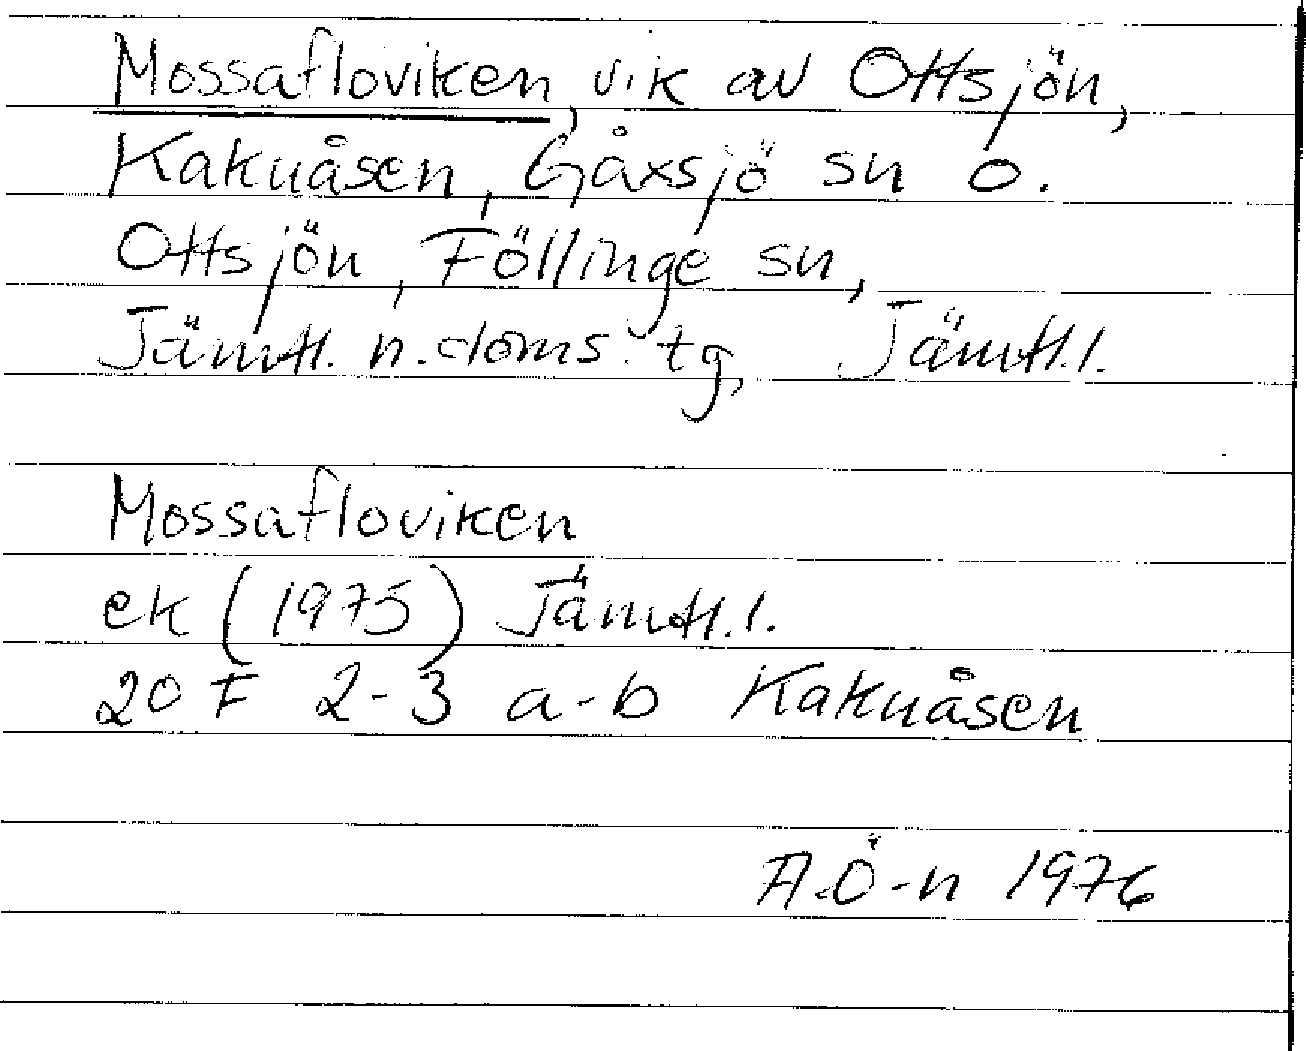 Mossafloviken, vik av Ottsjön,
Kakuåsen, Gåxsjö sn o.
Ottsjön, Föllinge sn,
Jämtl. n. doms. tg, Jämtl. l.
Mossafloviken
ek (1975) Jämtl. l.
20 F 2-3 a-b Kakuåsen
A.Ö-n 1976